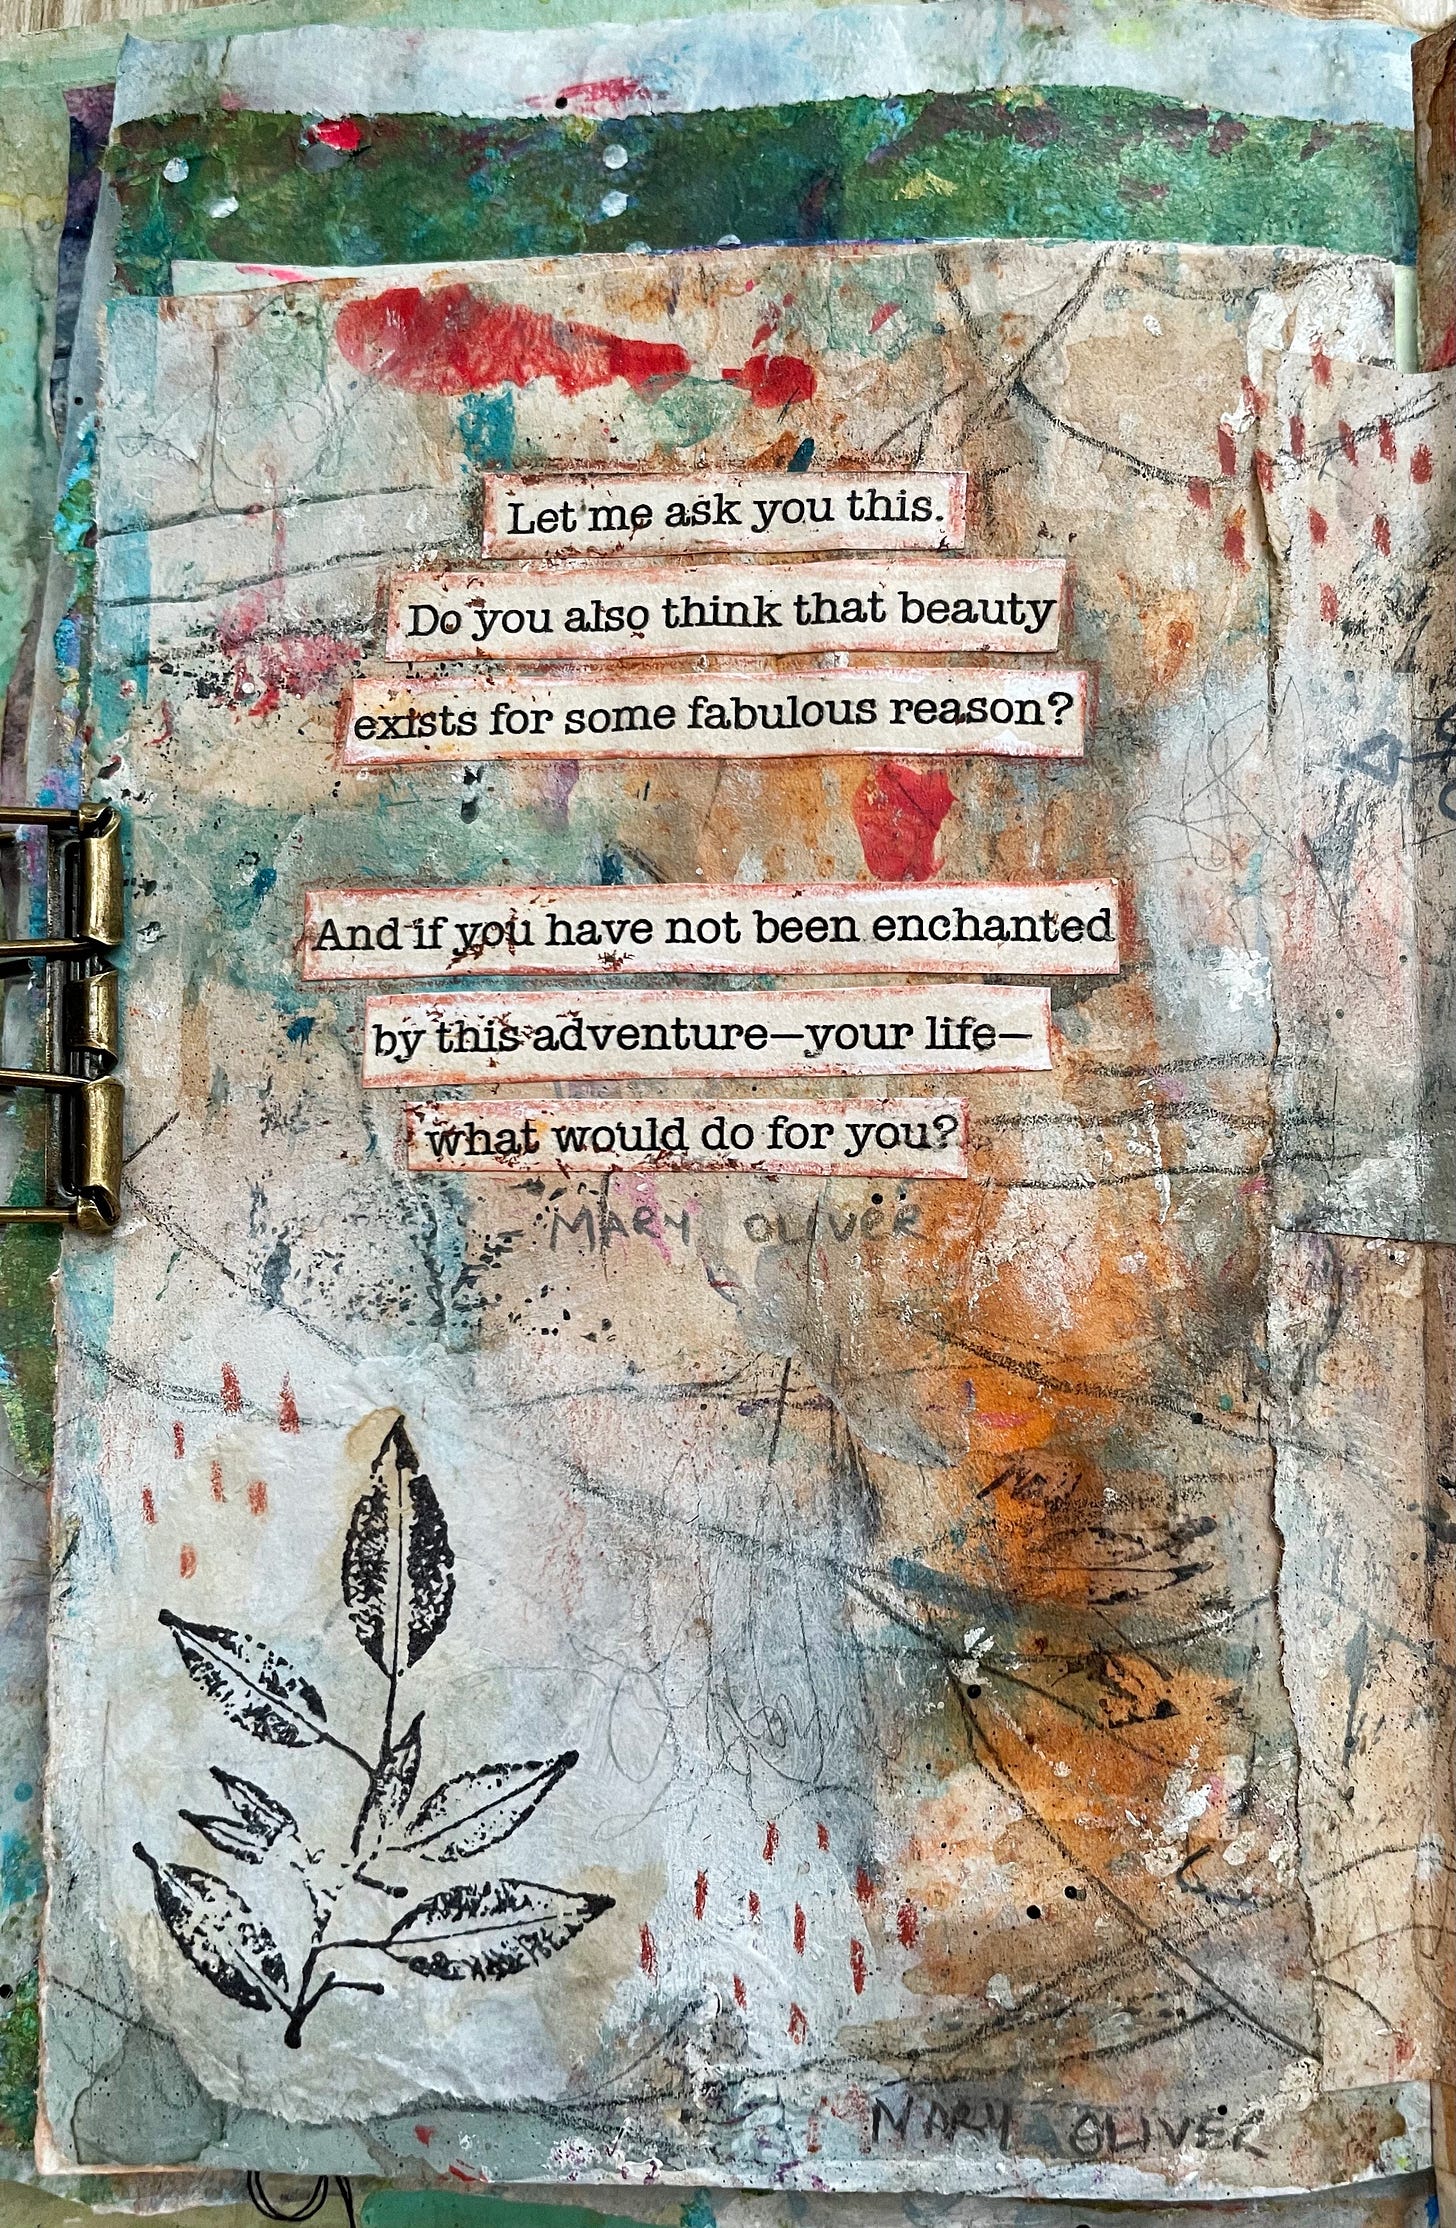 Let me ask you this.
Do you also think that beauty
exists for some fabulous reason?
And if you have not been enchanted
by this adventure—your life—
what would do for you?
MARY OLIVER
MARY OLIVER